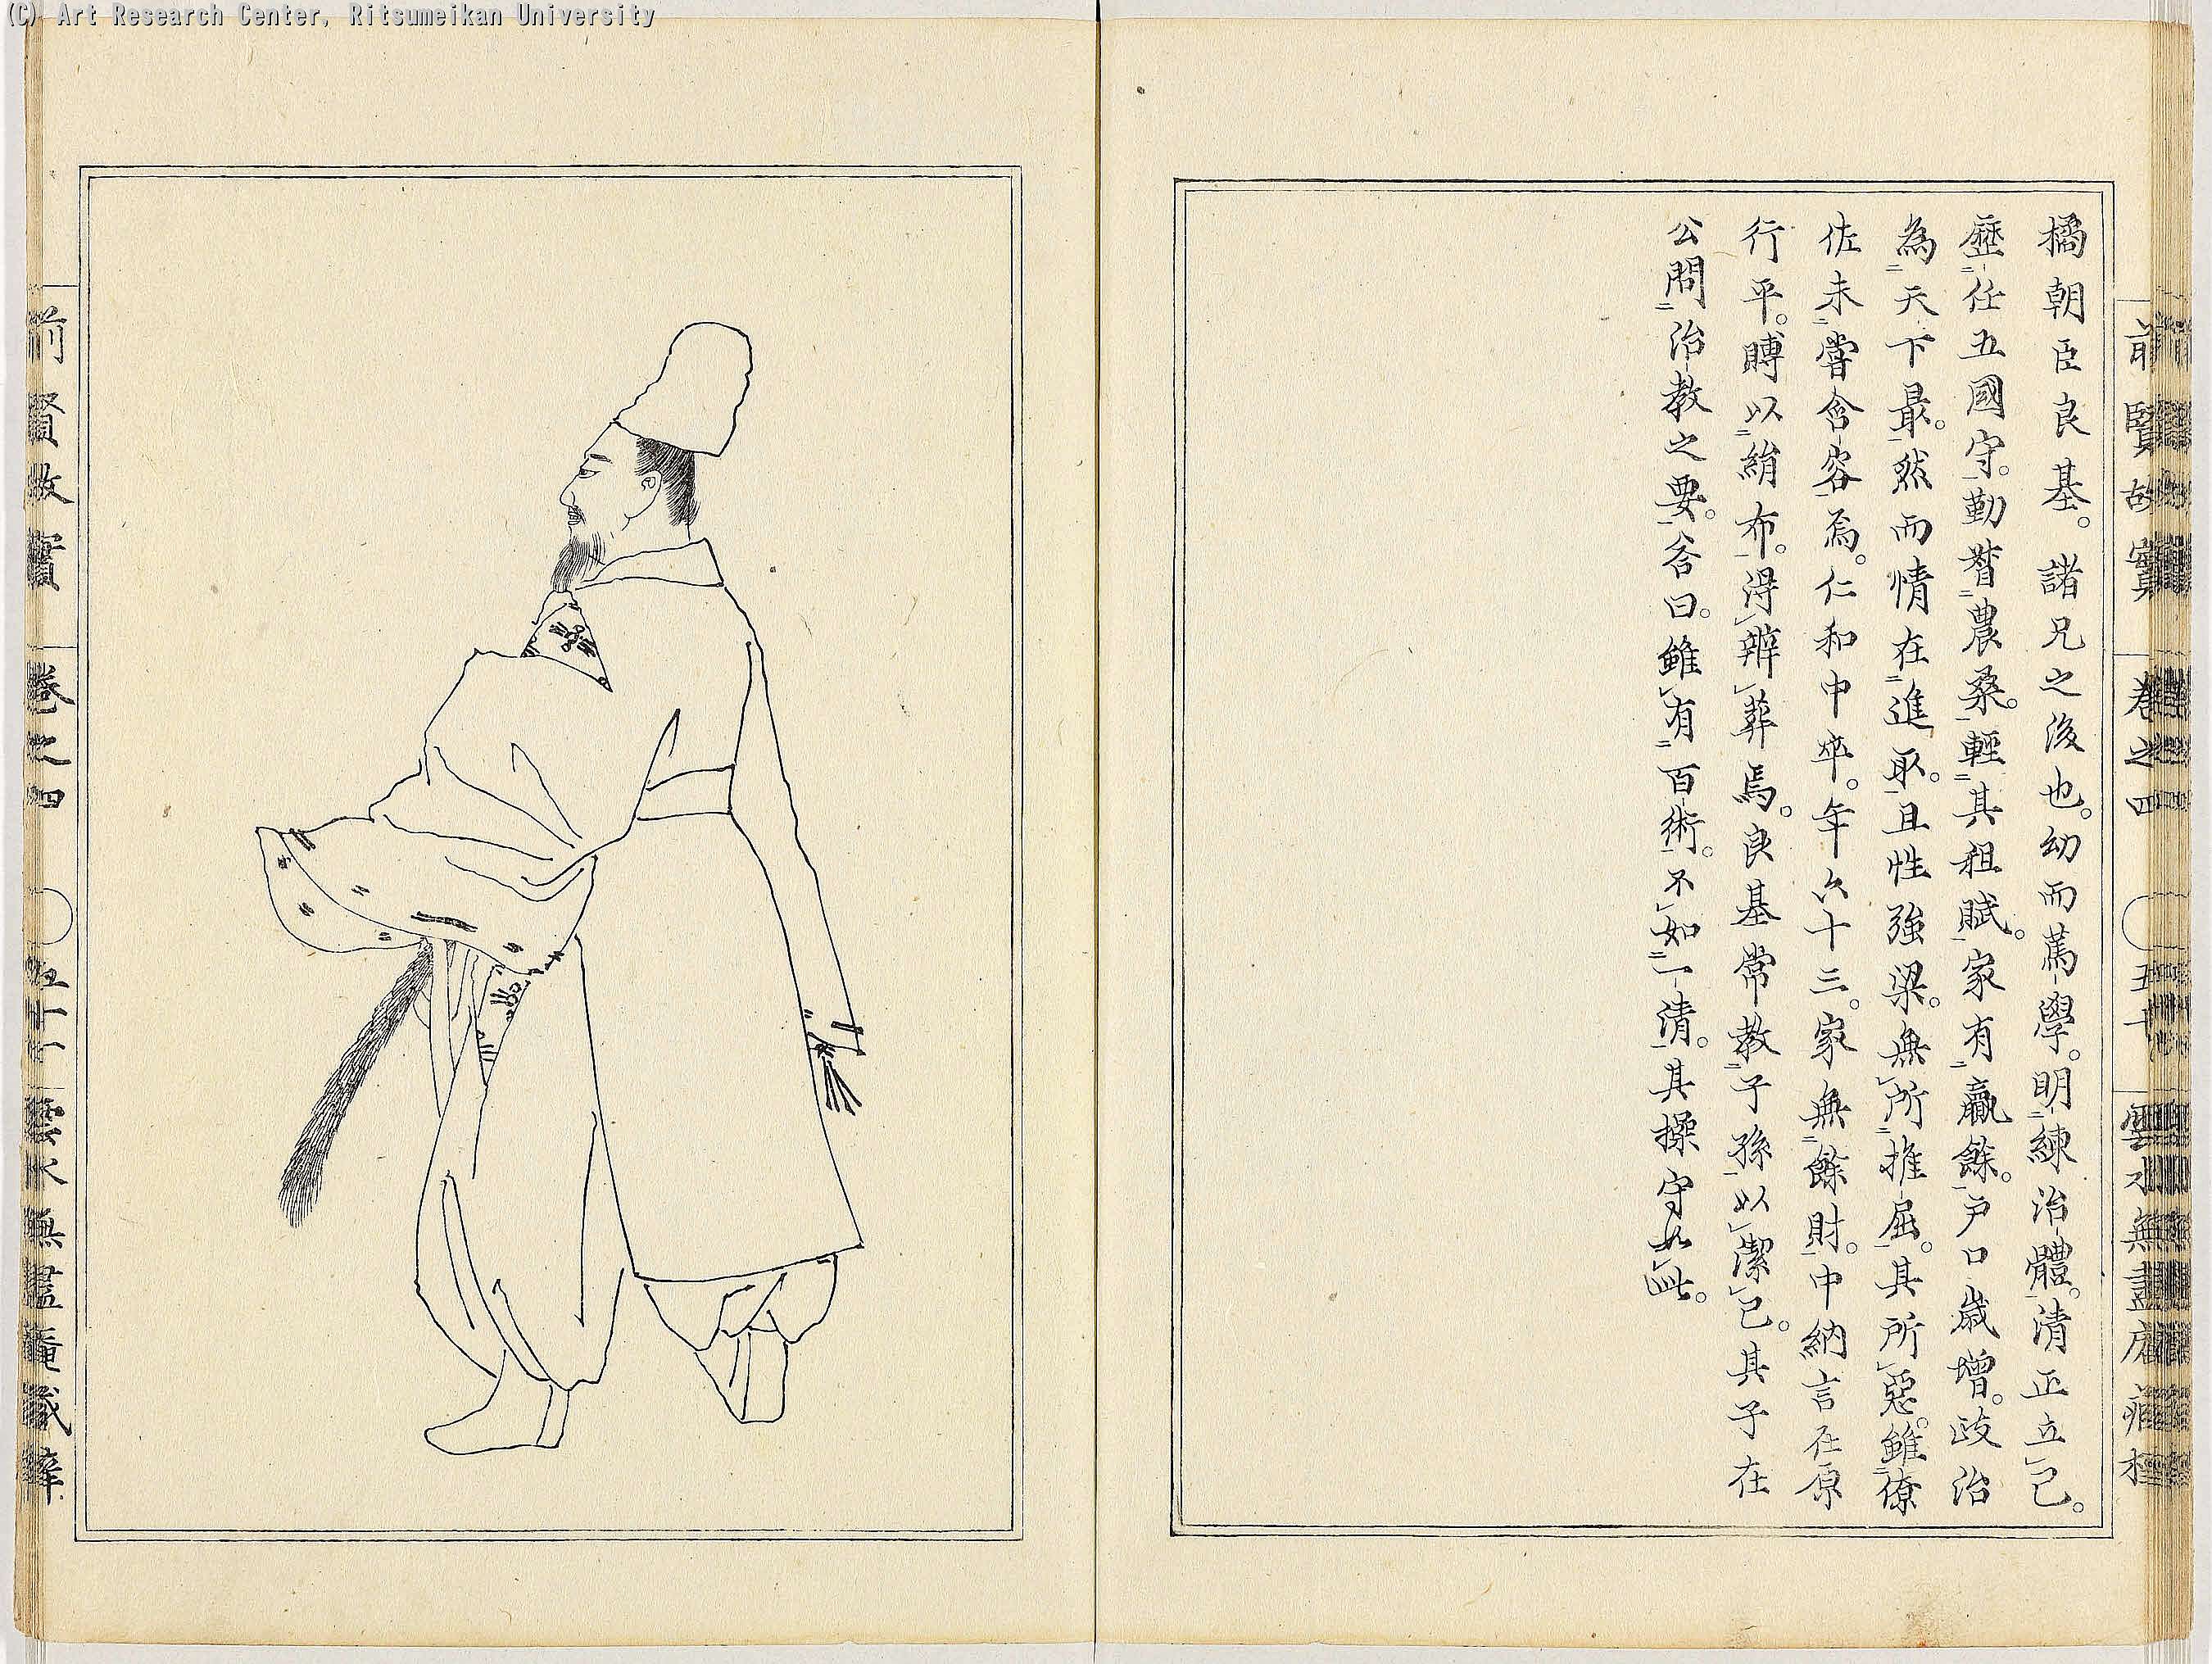 (C) Art Research Center, Ritsumeikan University
前賢故實 卷之四 〇五十 雲水無盡庵藏梓
橘朝臣良基。諸兄之後也。幼而篤學。明練治體。清正立己。
歷任五國守。勤督農桑。輕其租賦。家有贏餘。戸口歲增。政治
為天下最。然而情在進取。且性強梁。無所推屈。其所惡。雖僚
佐未嘗含容焉。仁和中卒。年六十三。家無餘財。中納言在原
行平。賻以絹布。得辨葬焉。良基常教子孫以潔己。其子在
公問治教之要。答曰。雖有百術。不如一清。其操守如此。
前賢故實 卷之四 〇五十一 雲水無盡庵藏梓